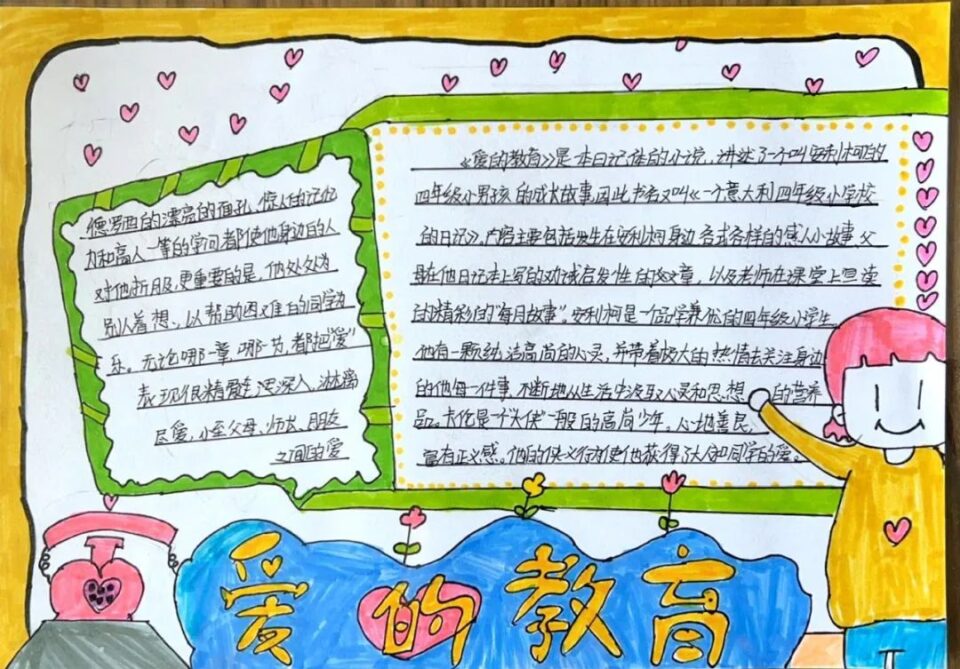 德罗西的漂亮的面孔、惊人的记忆
力和高人一等的学问都使他身边的人
对他折服,更重要的是,他处处为
别人着想、以帮助困难的同学为
乐。无论哪一章,哪一力,都把"爱"
表现很精爱更深入,淋漓
尽爱,小至父母、师长、朋友
之间的爱
《爱的教育》是本日记体的小说,讲述了一个叫安利柯的
四年级小男孩的成长故事因此书名又叫《一个意大利四年级小学校
的日记》,内容主要包括发生在安利柯身边各式各样的感人小故事、父
母在他日记本上写的劝诫启发性的文章,以及老师在课堂上宣读
的精彩的"每月故事"。安利柯是一个品学兼优的四年级小学生,
他有一颗纯洁高尚的心灵,并带着极大的热情去关注身边
的他每一件事,不断地从生活中汲取心灵和思想的营养
品。卡伦是个"大侠"一般的高尚少年,心地善民,
富有正义感。他的侠义行为使他获得了大家和同学的爱。
爱的教育